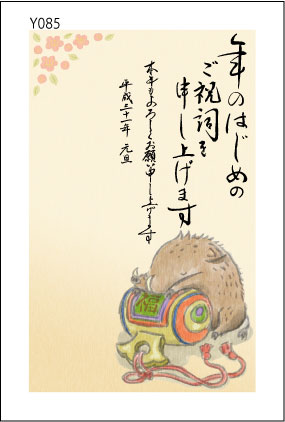 Y085
年のはじめの
ご祝詞を
申し上げます
本年もよろしくお願い申し上げます
平成三十一年 元旦
福